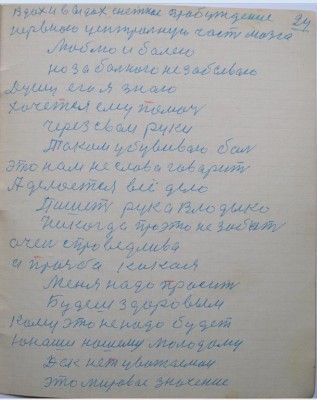 Вдох и выдох снежное пробуждение
24
нервною центральную часть мозга
Люблю и болею
но за болного не забываю
Душу его я знаю
хочется ему помоч
через свои руки
Таким убиваю бол
это нам не слова гаварит
А делается всё дело
Пишет рука владыко
Никогда про это не забыт
очен справедлива
и прозба какая
Меня надо просит
Будеш здоровым
Кому это не надо будет
Юнаши нашому молодому
Век нет уважаемаи
это мировае значение